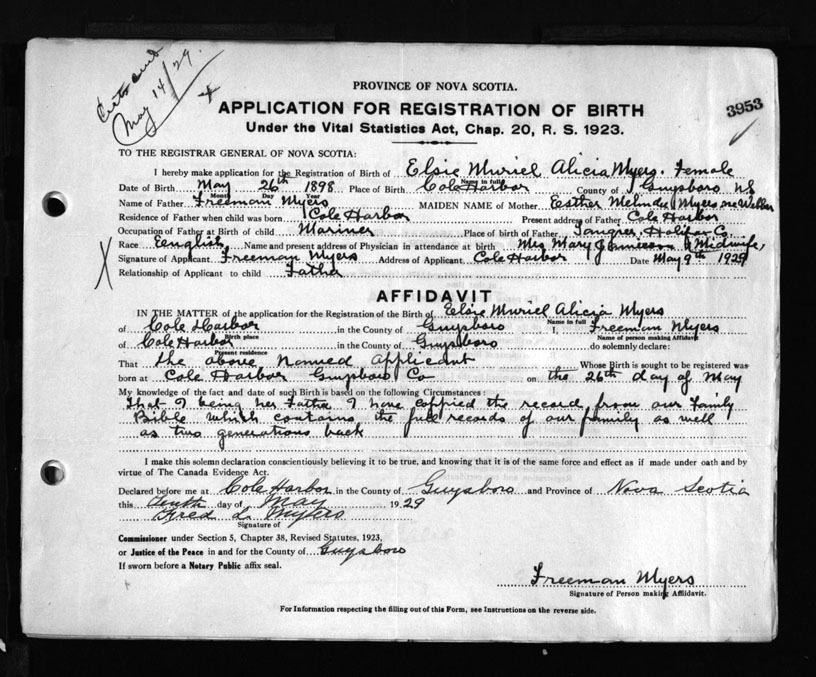 Certs send
May 14/29.
3953
PROVINCE OF NOVA SCOTIA.
APPLICATION FOR REGISTRATION OF BIRTH
Under the Vital Statistics Act, Chap. 20, R. S. 1923.
TO THE REGISTRAR GENERAL OF NOVA SCOTIA:
I hereby make application for the Registration of Birth of Elsie Muriel Alicia Myers. Female
Name in full
Date of Birth May 26th 1898 Place of Birth Cole Harbor County of Guysboro N.S
Month Day Year
Name of Father Freeman Myers MAIDEN NAME of Mother Esther Melinda Myers nee
Residence of Father when child was born Cole Harbor Present address of Father Cole Harbor
Occupation of Father at Birth of child Mariner Place of birth of Father Tangier, Halifax Co.
Race Eenglish Name and present address of Physician in attendance at birth Mrs Mary Jamieson (Midwife,
Signature of Applicant Freeman Myers Address of Applicant Cole Harbor Date May 9th 1929
Relationship of Applicant to child Father
AFFIDAVIT
IN THE MATTER of the application for the Registration of the Birth of Elsie Muriel Alicia Myers
Name in full
of Cole Harbor in the County of Guysboro I, Freeman Myers
Birth place Name of person making Affidavit
of Cole Harbor in the County of Guysboro do solemnly declare:
Present residence
That the above Named Applicant Whose Birth is sought to be registered was
born at Cole Harbor Guysboro Co on the 26th day of May
My knowledge of the fact and date of such Birth is based on the following Circumstances:
That I being her Father I have coppied the record from our family
Bible which contains the full records of our family as well
as two generations back
I make this solemn declaration conscientiously believing it to be true, and knowing that it is of the same force and effect as if made under oath and by
virtue of The Canada Evidence Act.
Declared before me at Cole Harbor in the County of Guysboro and Province of Nova Scotia
this tenth day of May 1929
Fred L. Myers
Signature of
Commissioner under Section 5, Chapter 38, Revised Statutes, 1923,
or Justice of the Peace in and for the County of Guysboro
If sworn before a Notary Public affix seal.
Freeman Myers
Signature of Person making Affidavit.
For Information respecting the filling out of this Form, see Instructions on the reverse side.